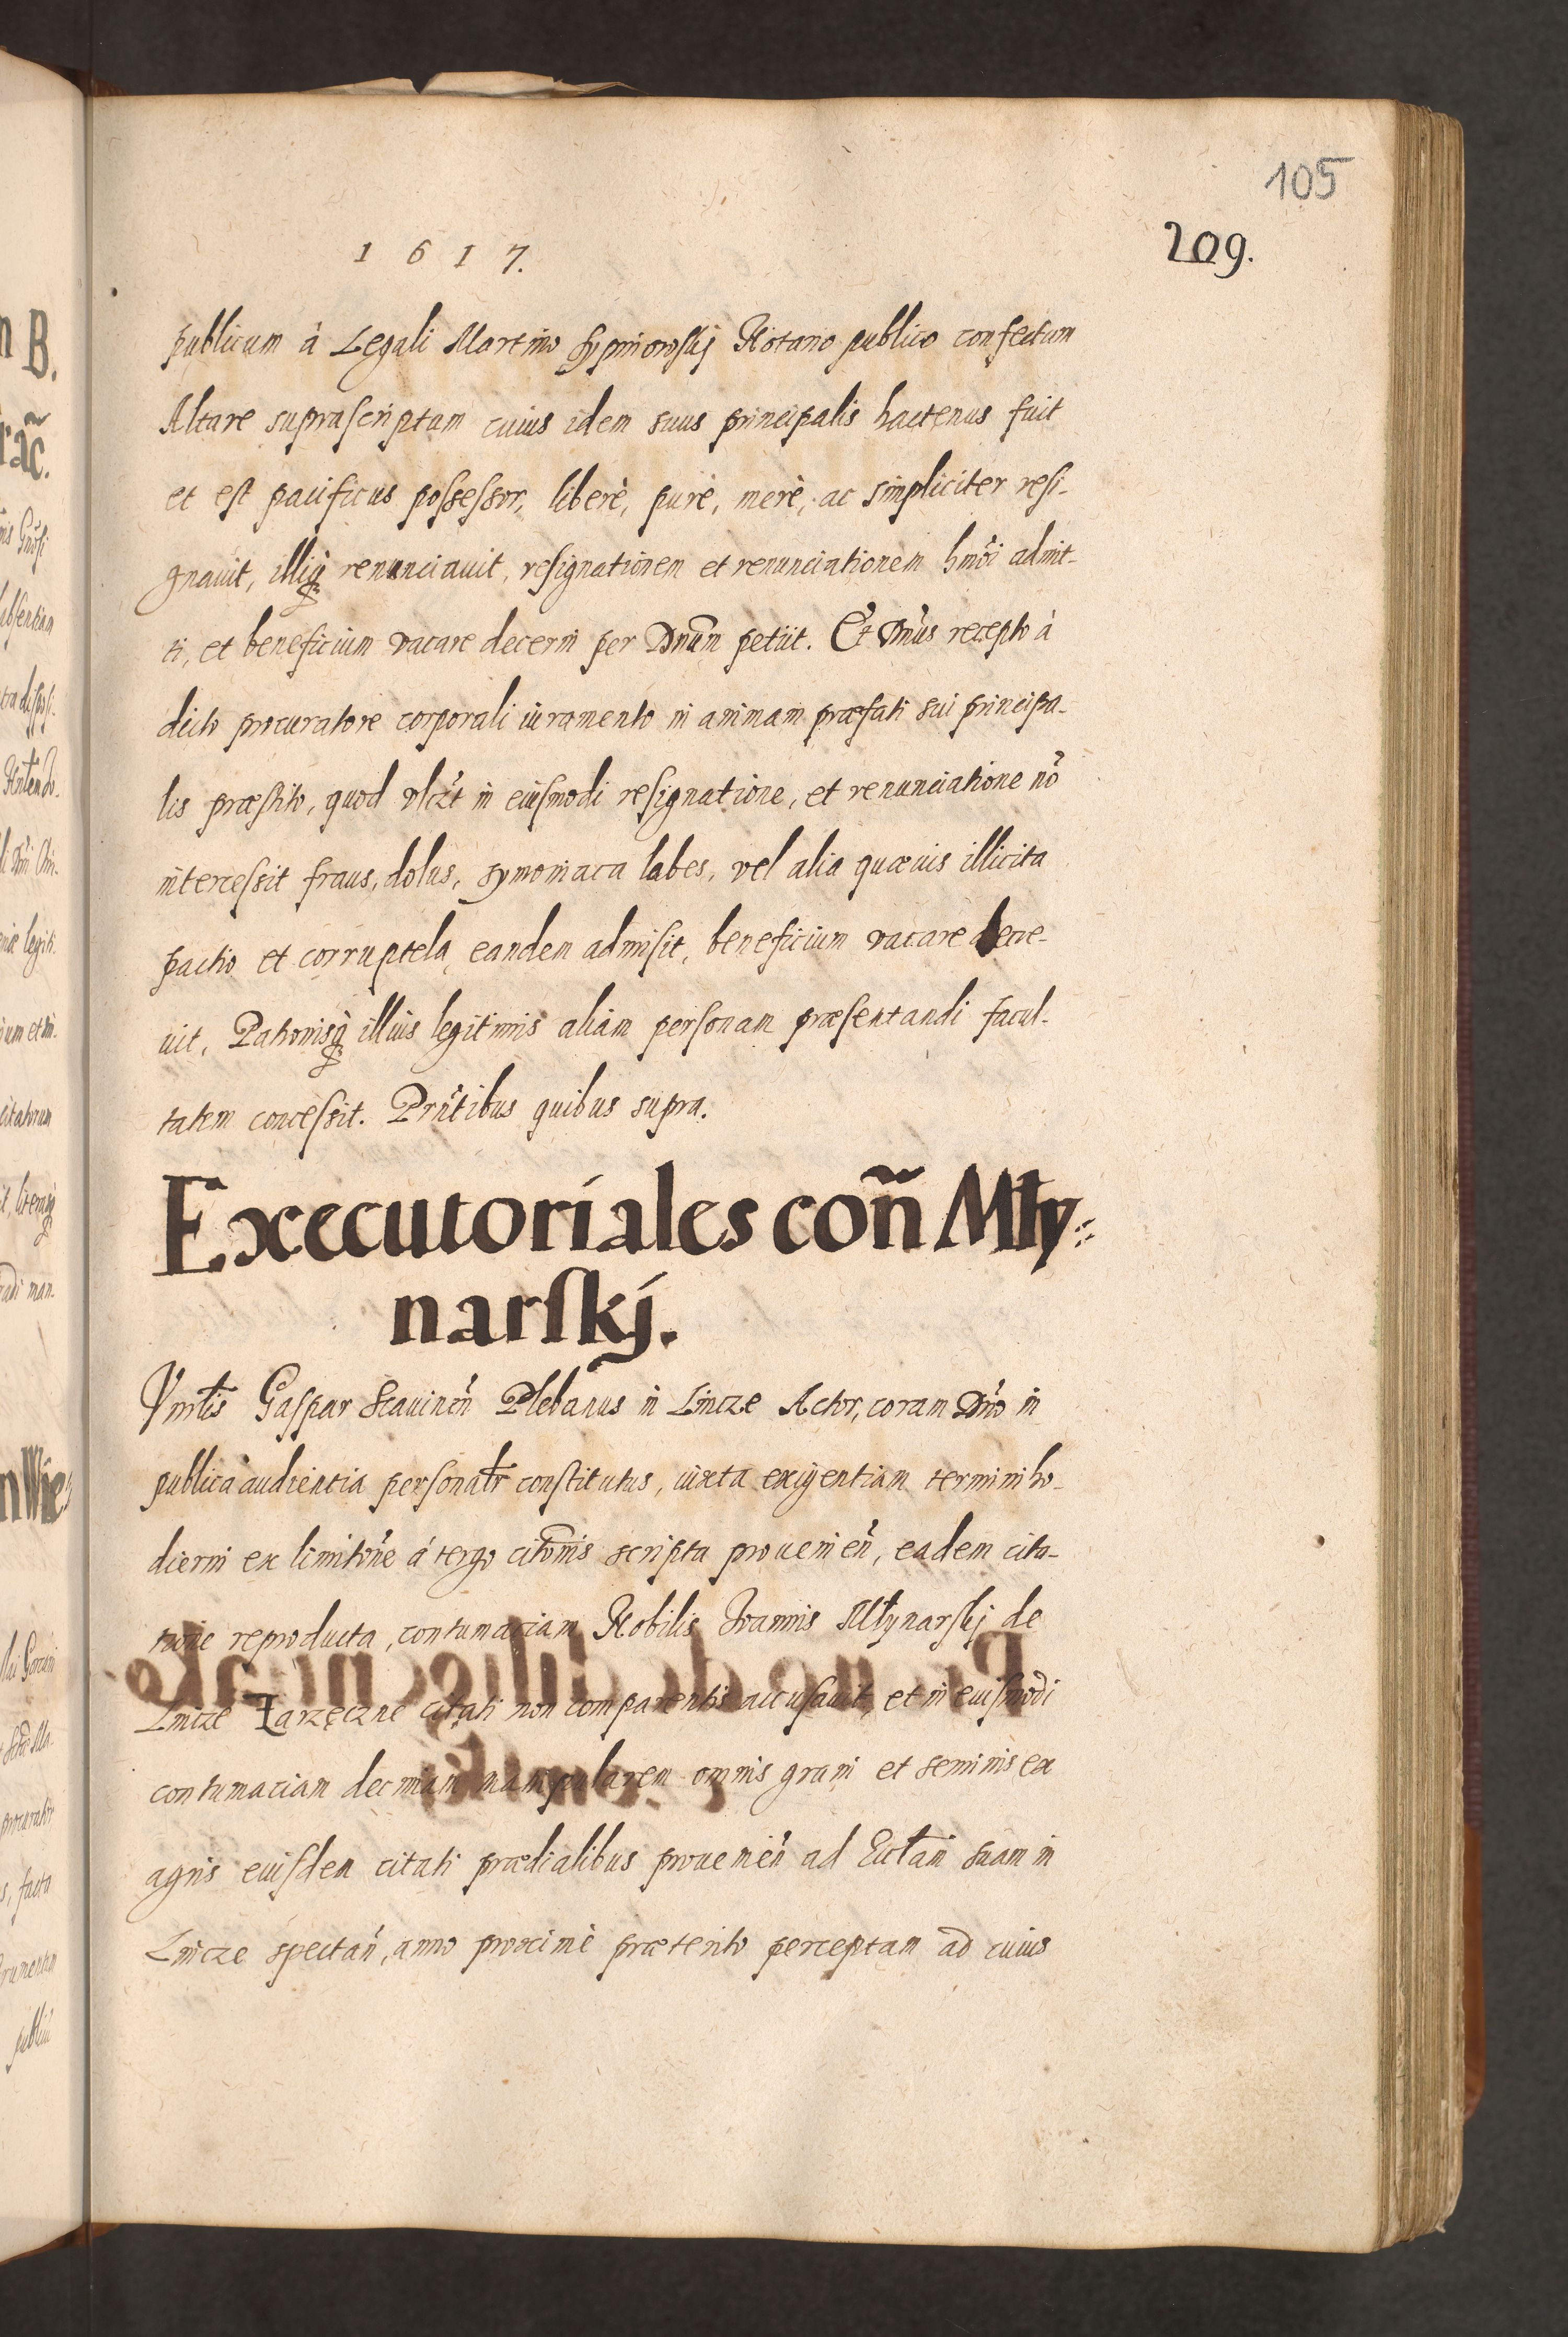 105
209.
1617.
publicum à Legali Martino Sypniowskj Notario publico confectum
Altare suprascriptum cuius idem suus principalis hactenus fuit
et est pacificus possessor, liberè, purè, merè, ac simpliciter resi-
gnauit, illiq₃ renunciauit, resignationem et renunciationem hmõi admit-
ti, et beneficium vacare decerni per Dnum petiit. Et Dnus recepto à
dicto procuratore corporali iuramento in animam præfati sui principa-
lis præstito, quod vlczt in eiusmodi resignatione, et renunciatione nõ
intercessit fraus, dolus, symoniaca labes, vel alia quæuis illicita
pactio et corruptela, eandem admisit, beneficium vacare decre-
uit, Patronisq₃ illius legitimis aliam personam præsentandi facul-
tatem concessit. Prñtibus quibus supra.
Executoriales coñ Mły-
narskj.
Gaspar Plebanus in Lincze Actor, coram Dno in
publica audientia personalr constitutus, iuxta exigentiam termini ho-
dierni ex limitõne á tergo citõnis scripta prouenieñ, eadem cita-
tione reproducta, contumaciam Nobilis Joannis Młynarskj de
Lincze Zarzęczne citati non comparentis accusauit, et in euismodi
contumaciam decimam manipularem omnis grani et seminis ex
agris euisdem citati prædialibus prouenieñ ad Eccłam suam in
Lincze spectañ, anno proximè præterito perceptam ad cuius